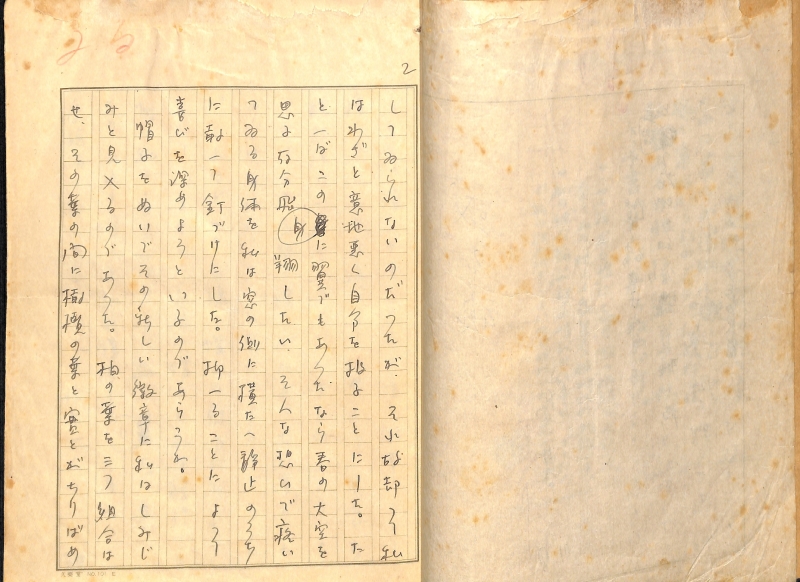 2
してゐられないのだつたが、それを却つて私
はわざと意地悪く自分を投ることにした。た
とへばこの身に翼でもあつたなら春の大空を
思ふ存分飛翔したい、そんな想ひで疼い
てゐる身体を私は窓の側に横たへ静止のうち
に敲つて釘づけにした。抑へることによつて
喜びを深めようといふのであらうか。
帽子をぬいでその新しい徽章に私はしみじ
みと見入るのであつた。柏の葉を三つ組合は
せ、その葉の間に橄欖の葉と実とがちりばめ